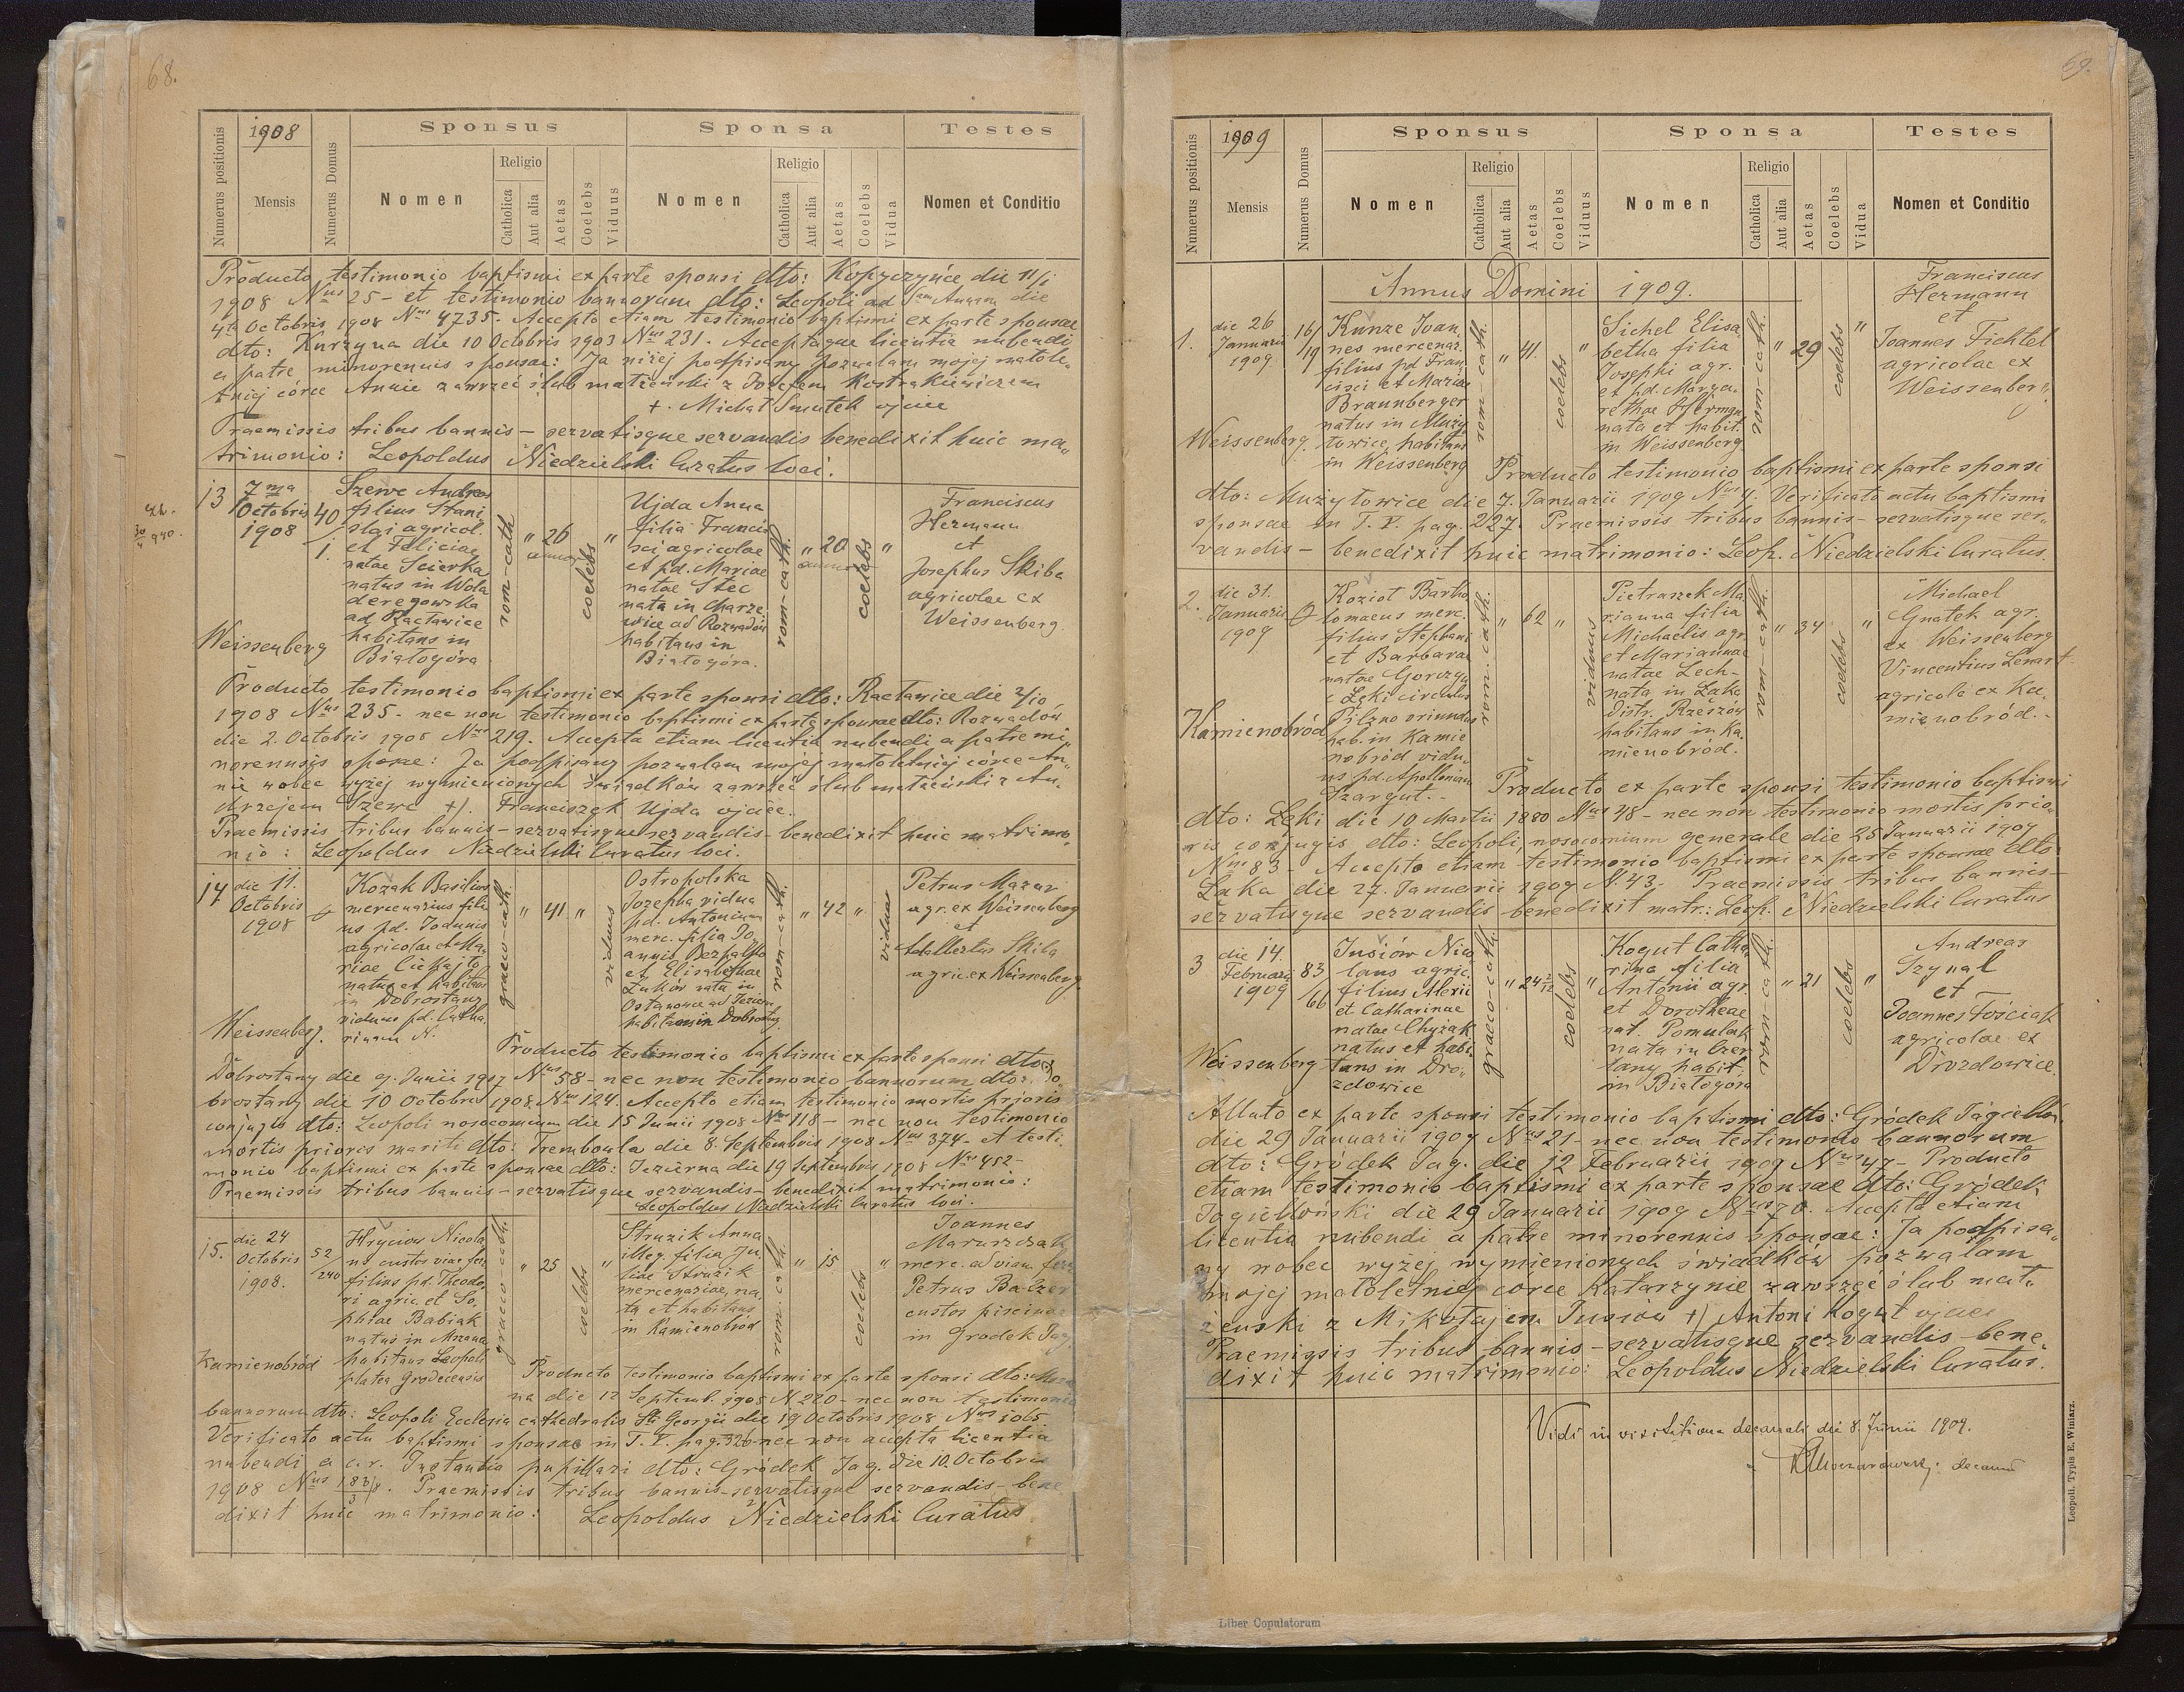 68.
1908
Numerus positionis
Mensis
Numerus Domus
Sponsus
Nomen
Religio
Catholica
Aut alia
Aetas
Coelebs
Viduus
Sponsa
Nomen
Religio
Catholica
Aut alia
Aetas
Coelebs
Vidua
Testes
Nomen et Conditio
Producto testimonio baptismi ex parte sponsi dto: Kopyczyńce die 11/i
1908 Nus 25 - et testimonio bannorum dto: Leopoli ad Sam Annam die
4ta Octobris 1908 Nus 4735. Accepto etiam testimonio baptismi ex parte sponsae
dto: Kurzyna die 10 Octobris 1903 Nus 231. Acceptaque licentia nubendi
a patre minorennis sponsae: Ja niżej podpisany pozwalam mojej małole„
tniej córce Annie zawrzeć ślub małżeński z Józefem Kostrakiewiczem
+. Michał Smutek ojciec
Praemissis tribus bannis - servatisque servandis benedixit huic ma„
trimonio: Leopoldus Niedzielski Curatus loci.
13
7ma
Octobris
1908
40
1.
Szewc Andreas
filius Stani
slai agricol.
et Feliciae
natae Scierka
natus in Wola
deregowska
ad Racławice
habitans in
Białogóra
Weissenberg
rom-cath
„
26
annor
coelebs
„
Ujda Anna
filia Francis
sci agricolae
et pd. Mariae
natae Stec
nata in Charze
wice ad Rozwadów
habitans in
Białogóra.
rom-cath.
„
20
annor
coelebs
„
Franciscus
Hermann
et
Josephus Skiba
agricolae ex
Weissenberg.
Producto testimonio baptismi ex parte sponsi dto: Racławice die 2/10
1908 Nus 235 - nec non testimonio baptismi ex parte sponsae dto: Rozwadów
die 2. Octobris 1908 Nus 219. Accepta etiam licentia nubendi a patre mi„
norennis sponsae: Ja podpisany pozwalam mojej małoletniej córce An„
nie wobec wyżej wymienionych świadków zawrzeć ślub małżeński z An„
drzejem Szewc +). Franciszek Ujda ojciec.
Praemissis tribus bannis - servatisque servandis - benedixit huic matrimo„
nio: Leopoldus Niedzielski Curatus loci.
14
die 11.
Octobris
1908
Kozak Basilius
mercenarius fili
us pd. Joannis
agricolae et Ma„
riae
natus et habitans
in Dobrostany
viduus pd. Catha„
rinam N.
Weissenberg.
graeco-cath.
„
41
„
viduus
Ostropolska
Josepha vidua
pd. Antonium
merc. filia Jo„
annis Bezpalko
et Elisabethae
Żuków nata in
Ostaszowce ad Jezierna
habitans in Dobrostany.
rom-cath.
„
42
„
vidua
Petrus Mazur
agr. ex Weissenberg
et
Adalbertus Skiba
agric. ex Weissenberg.
Producto testimonio baptismi ex parte sponsi dto:
Dobrostany die 9. Junii 1907 Nus 58 - nec non testimonio bannorum dto: Do„
brostany die 10 Octobris 1908. Nus 124. Accepto etiam testimonio mortis prioris
conjugis dto: Leopoli nosocomium die 15 Junii 1908 Nus 118 - nec non testimonio
mortis prioris mariti dto: Trembowla die 8. Septembris 1908 Nus 374 - et testi„
monio baptismi ex parte sponsae dto: Jezierna die 19 Septembris 1908 Nus 452 -
Praemissis tribus bannis - servatisque servandis - benedixit matrimonio:
Leopoldus Niedzielski Curatus loci.
15.
die 24
Octobris
1908.
52/
240
Hryciów Nicola„
us custos viae ferr.
filius pd. Theodo„
ri agric. et So„
phiae Babiak
natus in
habitans Leopoli
platea Grodecensis
Kamienobród
graeco-cath.
„
25
coelebs
„
Struzik Anna
illeg. filia Ju„
liae Struzik
mercenariae, na„
ta et habitans
in Kamienobród
rom-cath.
„
15
coelebs
„
Joannes
Maruszczak
merc. ad viam ferr.
Petrus Balzer
custos piscinae
in Grodek Jag.
Producto testimonio baptismi ex parte sponsi dto:
na die 12 Septemb. 1908 N 220 - nec non testimonio
bannorum dto: Leopoli Ecclesia cathedralis Sti Georgii die 19 Octobris 1908 Nus 1065
Verificato actu baptismi sponsae in T. V. pag. 320 - nec non accepta licentia
nubendi a c.r. Instantia pupillari dto: Gródek Jag. die 10. Octobris
1908 Nus Praemissis tribus bannis - servatisque servandis - bene
dixit huic matrimonio: Leopoldus Niedzielski Curatus
69.
1909
Numerus positionis
Mensis
Numerus Domus
Sponsus
Nomen
Religio
Catholica
Aut alia
Aetas
Coelebs
Viduus
Sponsa
Nomen
Religio
Catholica
Aut alia
Aetas
Coelebs
Vidua
Testes
Nomen et Conditio
Annus Domini 1909.
1.
die 26
Januarii
1909
16/
19
Kunze Joan„
nes mercenar.
filius pd. Fran„
cisci et Mariae
Braunberger
natus in Muży
łowice, habitans
in Weissenberg
Weissenberg.
rom-cath.
„
41.
coelebs
„
Sichel Elisa„
betha filia
Josephi agr.
et pd. Marga„
rethae Herman
nata et habit.
in Weissenberg.
rom-cath.
„
29
coelebs
„
Franciscus
Hermann
et
Joannes Fichtel
agricolae ex
Weissenberg.
Producto testimonio baptismi ex parte sponsi
dto: Mużyłowice die 7. Januarii 1909 Nus 4. Verificato actu baptismi
sponsae in T. V. pag. 227. Praemissis tribus bannis - servatisque ser„
vandis - benedixit huic matrimonio: Leop. Niedzielski Curatus.
2.
die 31.
Januarii
1909
Kozioł Bartho
lomaeus merc.
filius Stephani
et Barbarae
natae Gorczyca
e Łęki circulus
Pilzno oriundus
hab. in Kamie
nobród vidu„
us pd. Apolloniam
Szargut.
Kamienobród
rom-cath.
„
62
„
viduus
Pietraszek Ma„
rianna filia
Michaelis agr.
et Mariannae
natae Lech -
nata in Łąka
distr. Rzeszów
habitans in Ka„
mienobród.
rom-cath.
„
34
coelebs
„
Michael
Gnatek agr.
ex Weissenberg
Vincentius Lenart
agricola ex Ka„
mienobród.
Producto ex parte sponsi testimonio baptismi
dto: Łęki die 10 Martii 1880 Nus 48 - nec non testimonio mortis prio„
ris conjugis dto: Leopoli, nosocomium generale die 25 Januarii 1909
Nus 83 - Accepto etiam testimonio baptismi ex parte sponsae dto:
Łąka die 27. Januarii 1909 N. 43. Praemissis tribus bannis -
servatisque servandis benedixit matr.: Leop. Niedzielski Curatus
3
die 14.
Februarii
1909
83
/66
Jusiów Nico„
laus agric.
filius Alexii
et Catharinae
natae Chyżak
natus et habi„
tans in Dro„
zdowice
Weissenberg
graeco-cath.
„
24
coelebs
„
Kogut Catha„
rina filia
Antonii agr.
et Dorotheae
nat. Pomulak
nata in Czer
lany habit.
in Białogóra
rom-cath.
„
21
coelebs
„
Andreas
Szynal
et
Joannes Fościak
agricolae ex
Drozdowice.
Allato ex parte sponsi testimonio baptismi dto: Gródek Jagielloń.
die 29 Januarii 1909 Nus 21 - nec non testimonio bannorum
dto: Gródek Jag. die 12 Februarii 1909 Nus 47 - Producto
etiam testimonio baptismi ex parte sponsae dto: Gródek
Jagielloński die 29 Januarii 1909 Nus 70. Accepta etiam
licentia nubendi a patre minorennis sponsae: Ja podpisa„
ny wobec wyżej wymienionych świadków pozwalam
mojej małoletniej córce Katarzynie zawrzeć ślub mał„
żeński z Mikołajem Jusiów +) Antoni Kogut ojciec
Praemissis tribus bannis - servatisque servandis - bene„
dixit huic matrimonio: Leopoldus Niedzielski Curatus.
Vidi in visitatione decanali die 8. Junii 1909.
decanus
Leopoli. Typis E. Winiarz.
Liber Copulatorum